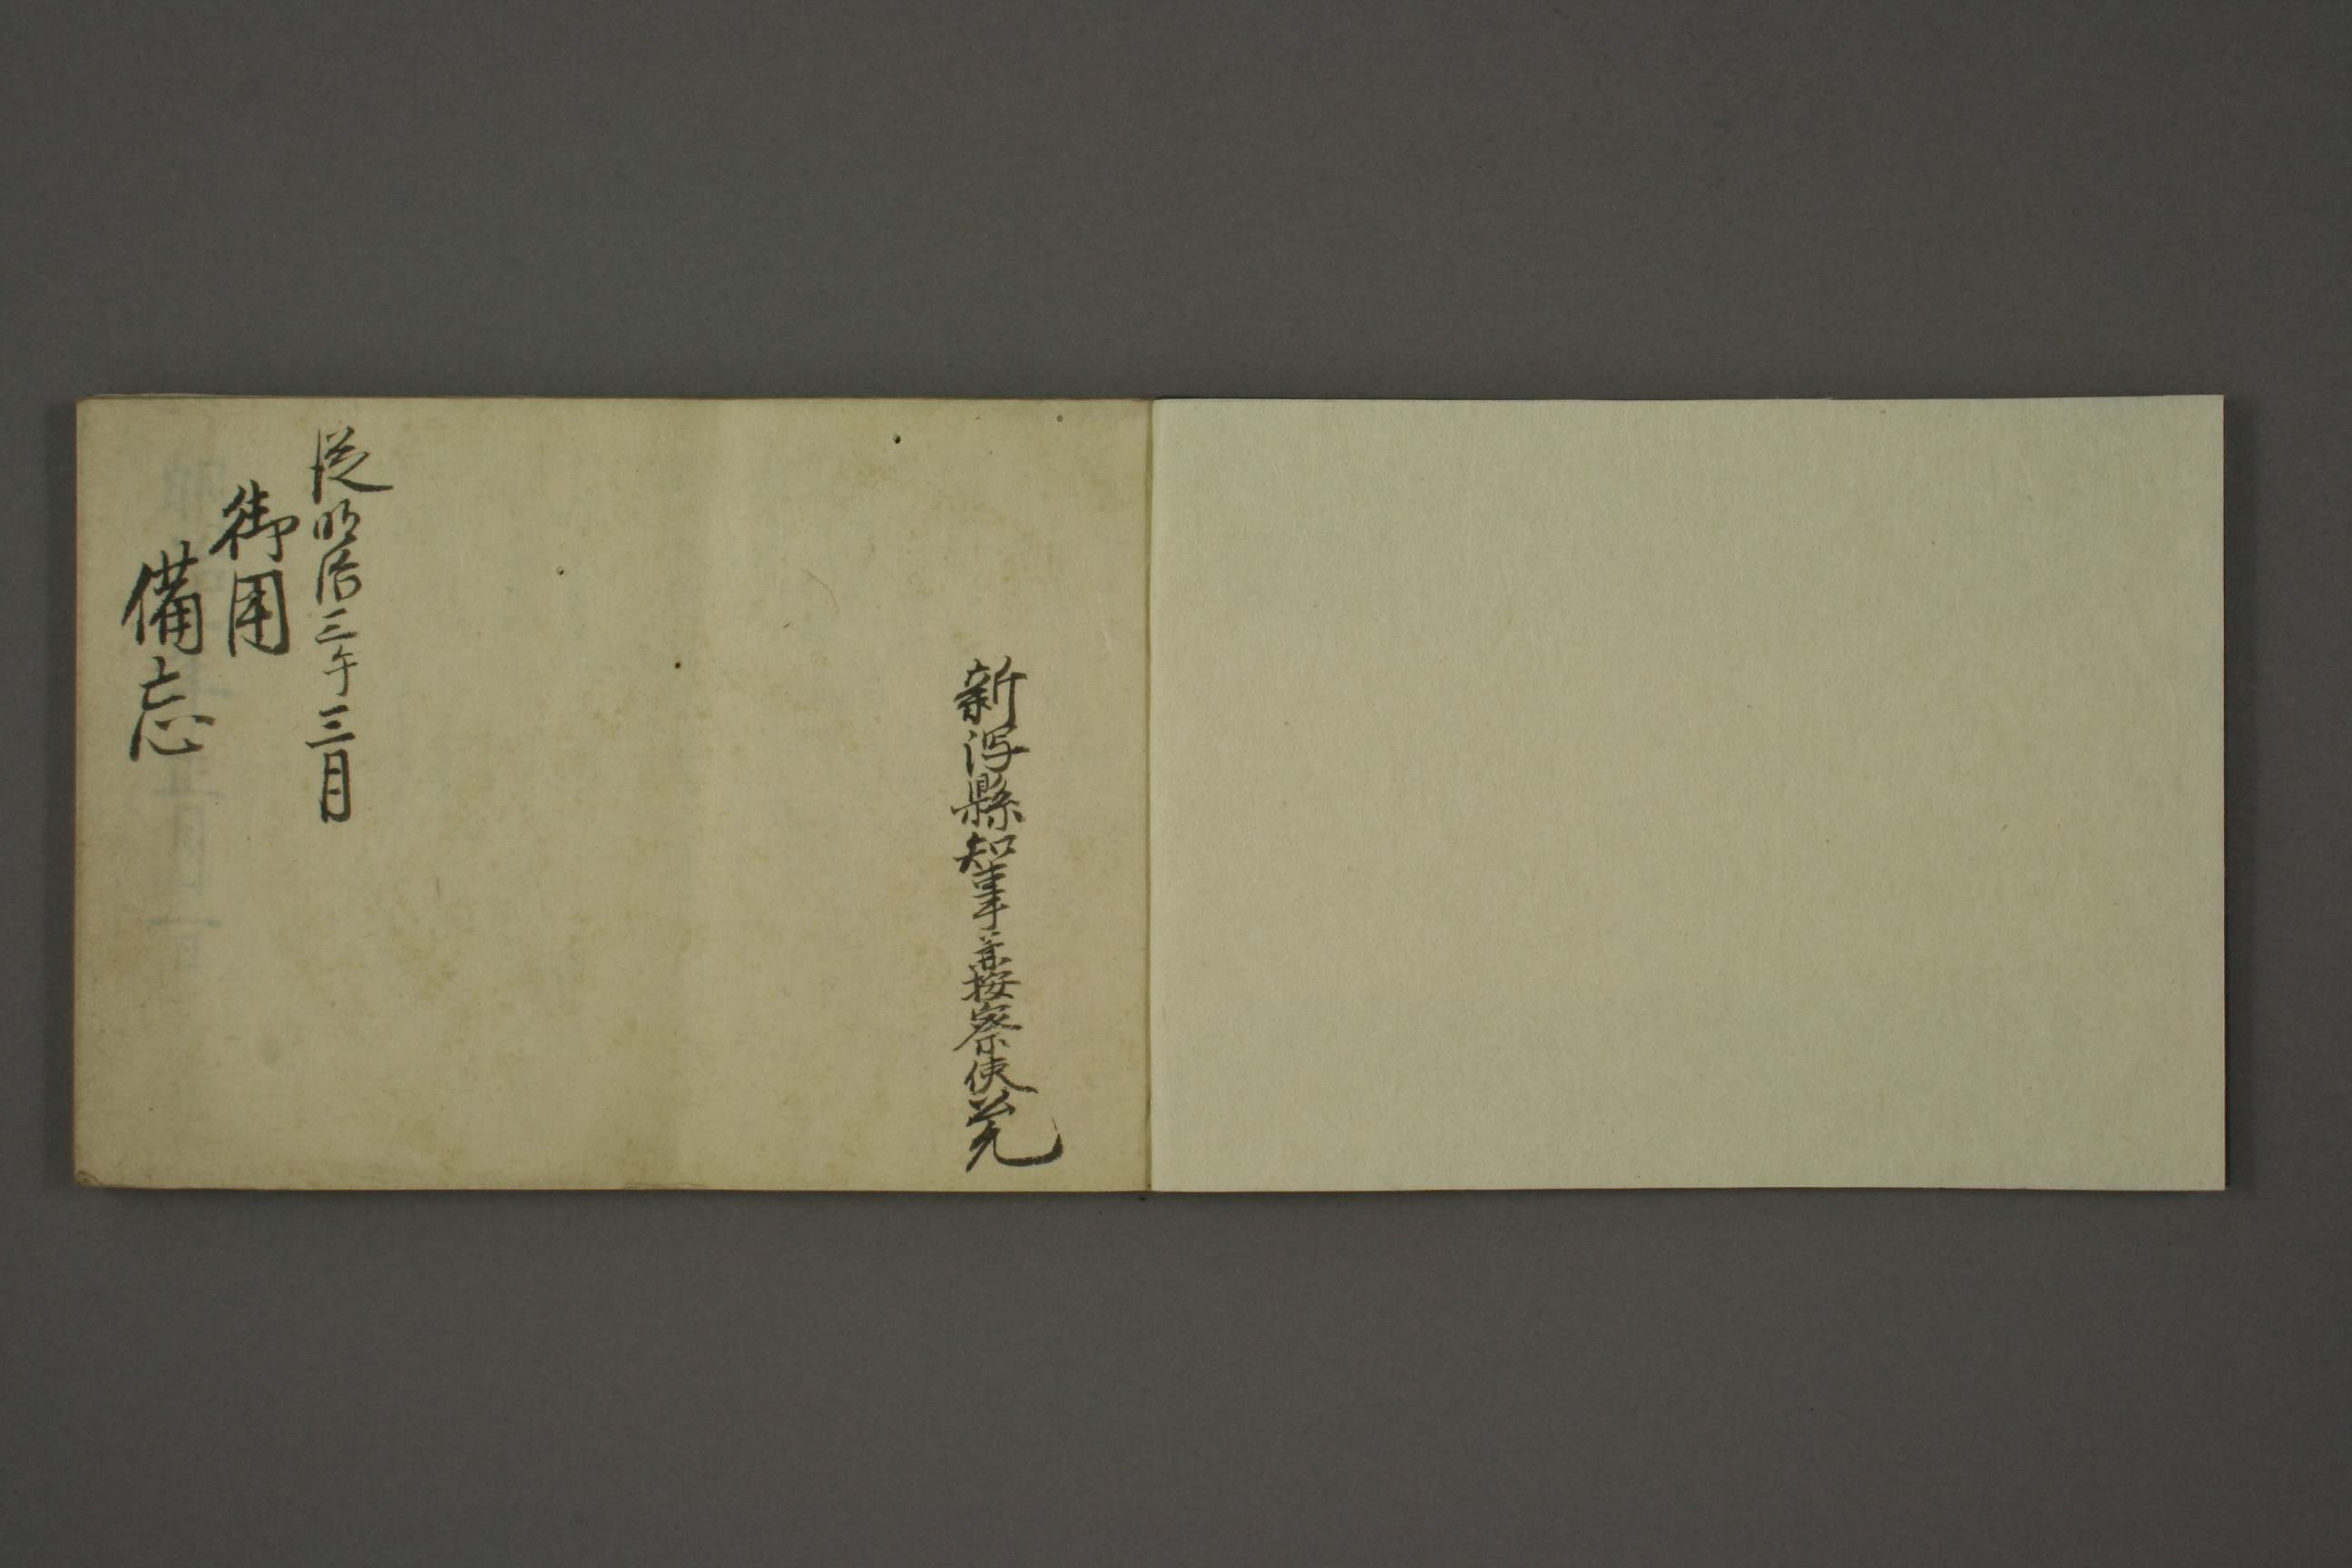 新潟縣知事兼按察使
従明治三午三月
御用
備忘